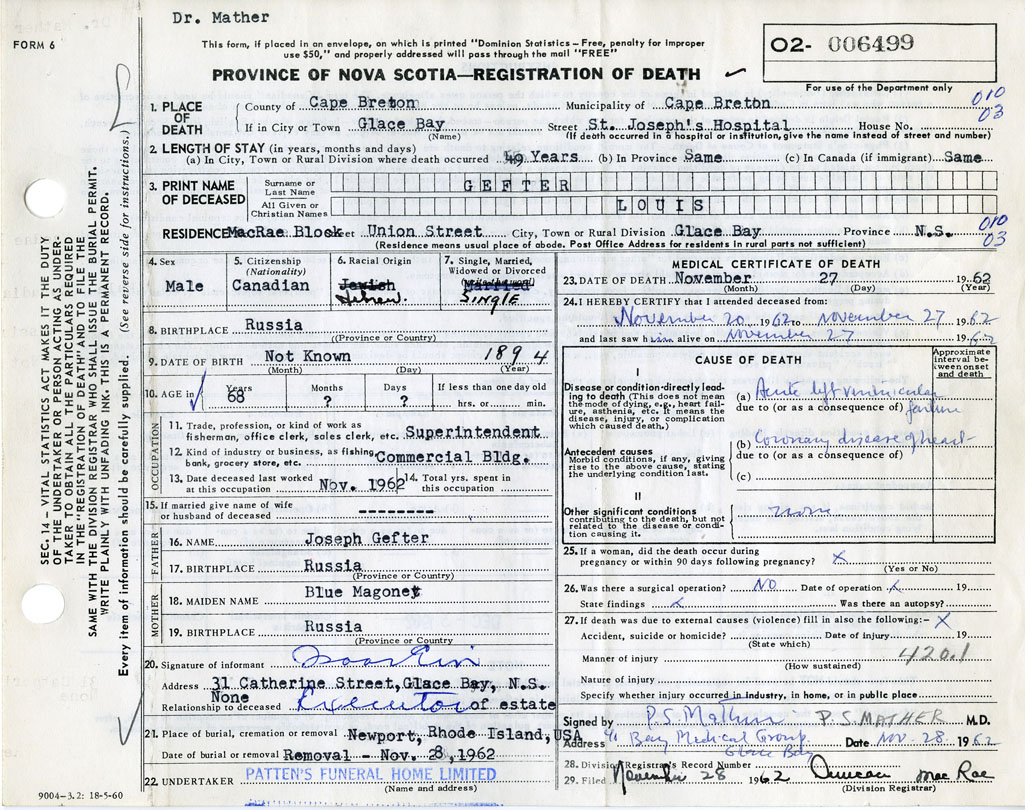 Dr. Mather
FORM 6
This form, if placed in an envelope, on which is printed "Dominion Statistics – Free, penalty for improper
use $50," and properly addressed will pass through the mail "FREE"
O2- 006499
PROVINCE OF NOVA SCOTIA—REGISTRATION OF DEATH
For use of the Department only
1. PLACE OF DEATH
County of Cape Breton Municipality of Cape Breton 010
If in City or Town Glace Bay Street St. Joseph's Hospital House No. 03
(Name) (If death occurred in a hospital or institution, give the name instead of street and number)
2. LENGTH OF STAY (in years, months and days)
(a) In City, Town or Rural Division where death occurred 49 Years (b) In Province Same (c) In Canada (if immigrant) Same
3. PRINT NAME OF DECEASED
Surname or Last Name GEFTER
All Given or Christian Names LOUIS
RESIDENCE MacRae Block Street Union Street City, Town or Rural Division Glace Bay Province N.S. 010 03
(Residence means usual place of abode. Post Office Address for residents in rural parts not sufficient)
4. Sex
Male
5. Citizenship
(Nationality)
Canadian
6. Racial Origin
Jewish
Hebrew.
7. Single, Married,
Widowed or Divorced
Married
SINGLE
8. BIRTHPLACE Russia
((Province or Country)
9. DATE OF BIRTH Not Known 1894
(Month) (Day) (Year)
10. AGE in Years 68 Months ? Days ? If less than one day old
hrs. or min.
OCCUPATION
11. Trade, profession, or kind of work as
fisherman, office clerk, sales clerk, etc. Superintendent
12. Kind of industry or business, as fishing,
bank, grocery store, etc. Commercial Bldg.
13. Date deceased last worked
at this occupation Nov. 1962
14. Total yrs. spent in
this occupation
15. If married give name of wife
or husband of deceased ---------
FATHER
16. NAME Joseph Gefter
17. BIRTHPLACE Russia
(Province or Country)
MOTHER
18. MAIDEN NAME Blue Magonet
19. BIRTHPLACE Russia
(Province or Country)
20. Signature of informant
Address 31 Catherine Street, Glace Bay, N.S.
None
Relationship to deceased Executor of estate
21. Place of burial, cremation or removal Newport, Rhode Island, USA
Date of burial or removal Removal - Nov. 28, 1962
22. UNDERTAKER PATTEN'S FUNERAL HOME LIMITED
(Name and address)
9004-3.2: 18-5-60
MEDICAL CERTIFICATE OF DEATH
23. DATE OF DEATH November 27 1962
(Month) (Day) (Year)
24. I HEREBY CERTIFY that I attended deceased from:
November 20 1962 to November 27 1962
and last saw him alive on November 27 1962
CAUSE OF DEATH
Approximate interval between onset and death
I
Disease or condition directly leading to death (This does not mean
the mode of dying, e.g., heart failure, asthenia, etc. It means the
disease, injury, or complication
which caused death.)
(a) Acute left ventricular
due to (or as a consequence of) failure
Antecedent causes
Morbid conditions, if any, giving
rise to the above cause, stating
the underlying condition last.
(b) Coronary disease of heart
due to (or as a consequence of)
(c)
II
Other significant conditions
contributing to the death, but not
related to the disease or condition causing it.
none
25. If a woman, did the death occur during
pregnancy or within 90 days following pregnancy? X
(Yes or No)
26. Was there a surgical operation? NO Date of operation X 19
State findings X Was there an autopsy?
27. If death was due to external causes (violence) fill in also the following:- X
Accident, suicide or homicide? Date of injury 19
(State which)
Manner of injury 420.1
(How sustained)
Nature of injury
Specify whether injury occurred in industry, in home, or in public place
Signed by P.S. Mather P.S. MATHER M.D.
Address c/o Bay Medical Group Date NOV. 28 1962
Glace Bay
28. Division Registrar's Record Number
29. Filed November 28 1962 Duncan MacRae
(Division Registrar)
SEC. 14 – VITAL STATISTICS ACT MAKES IT THE DUTY
OF THE UNDERTAKER OR PERSON ACTING AS UNDER-
TAKER TO OBTAIN ALL THE PARTICULARS REQUIRED
IN THE "REGISTRATION OF DEATH" AND TO FILE THE
SAME WITH THE DIVISION REGISTRAR WHO SHALL ISSUE THE BURIAL PERMIT.
WRITE PLAINLY WITH UNFADING INK. THIS IS A PERMANENT RECORD.
Every item of information should be carefully supplied. (See reverse side for instructions.)